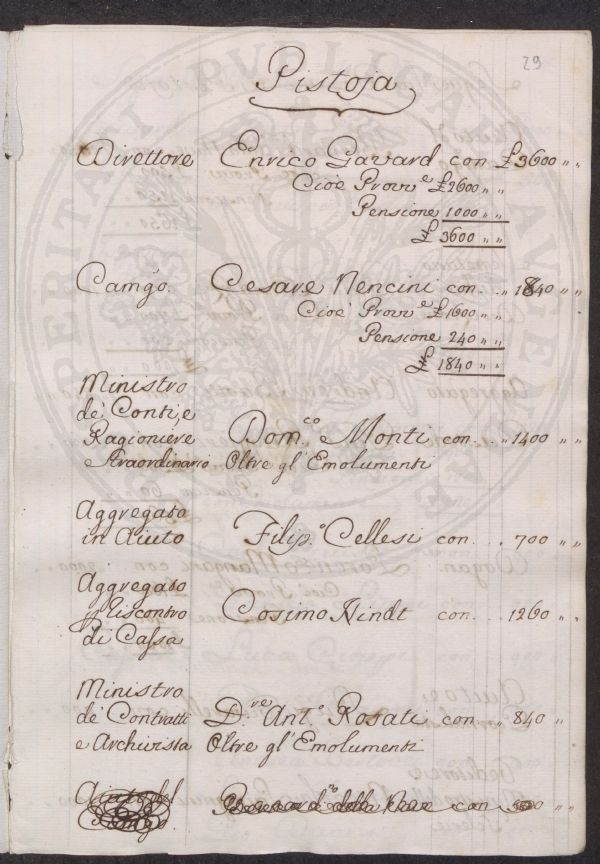 29
Pistoja
Direttore Enrico Gavard con £ 3600 " "
Cioè Provv.e £ 2600 " "
Pensione 1000 " "
£ 3600 " "
Camgo. Cesare Nencini con. " 1840 " "
Cioè Provv.e £ 1600 " "
Pensione 240 " "
£ 1840 " "
Ministro
de' Conti, e
Ragioniere Dom.co Monti con. " 1400 " "
Straordinario Oltre gl'Emolumenti
Aggregato
in Aiuto Filip.o Cellesi con . . 700 " "
Aggregato
Riscontro Cosimo Hindt con . . 1260 " "
di Cassa
Ministro
de' Contratti D.re Ant.o Rosati con " 840 "
e Archivista Oltre gl'Emolumenti
Aiuto del
della con "